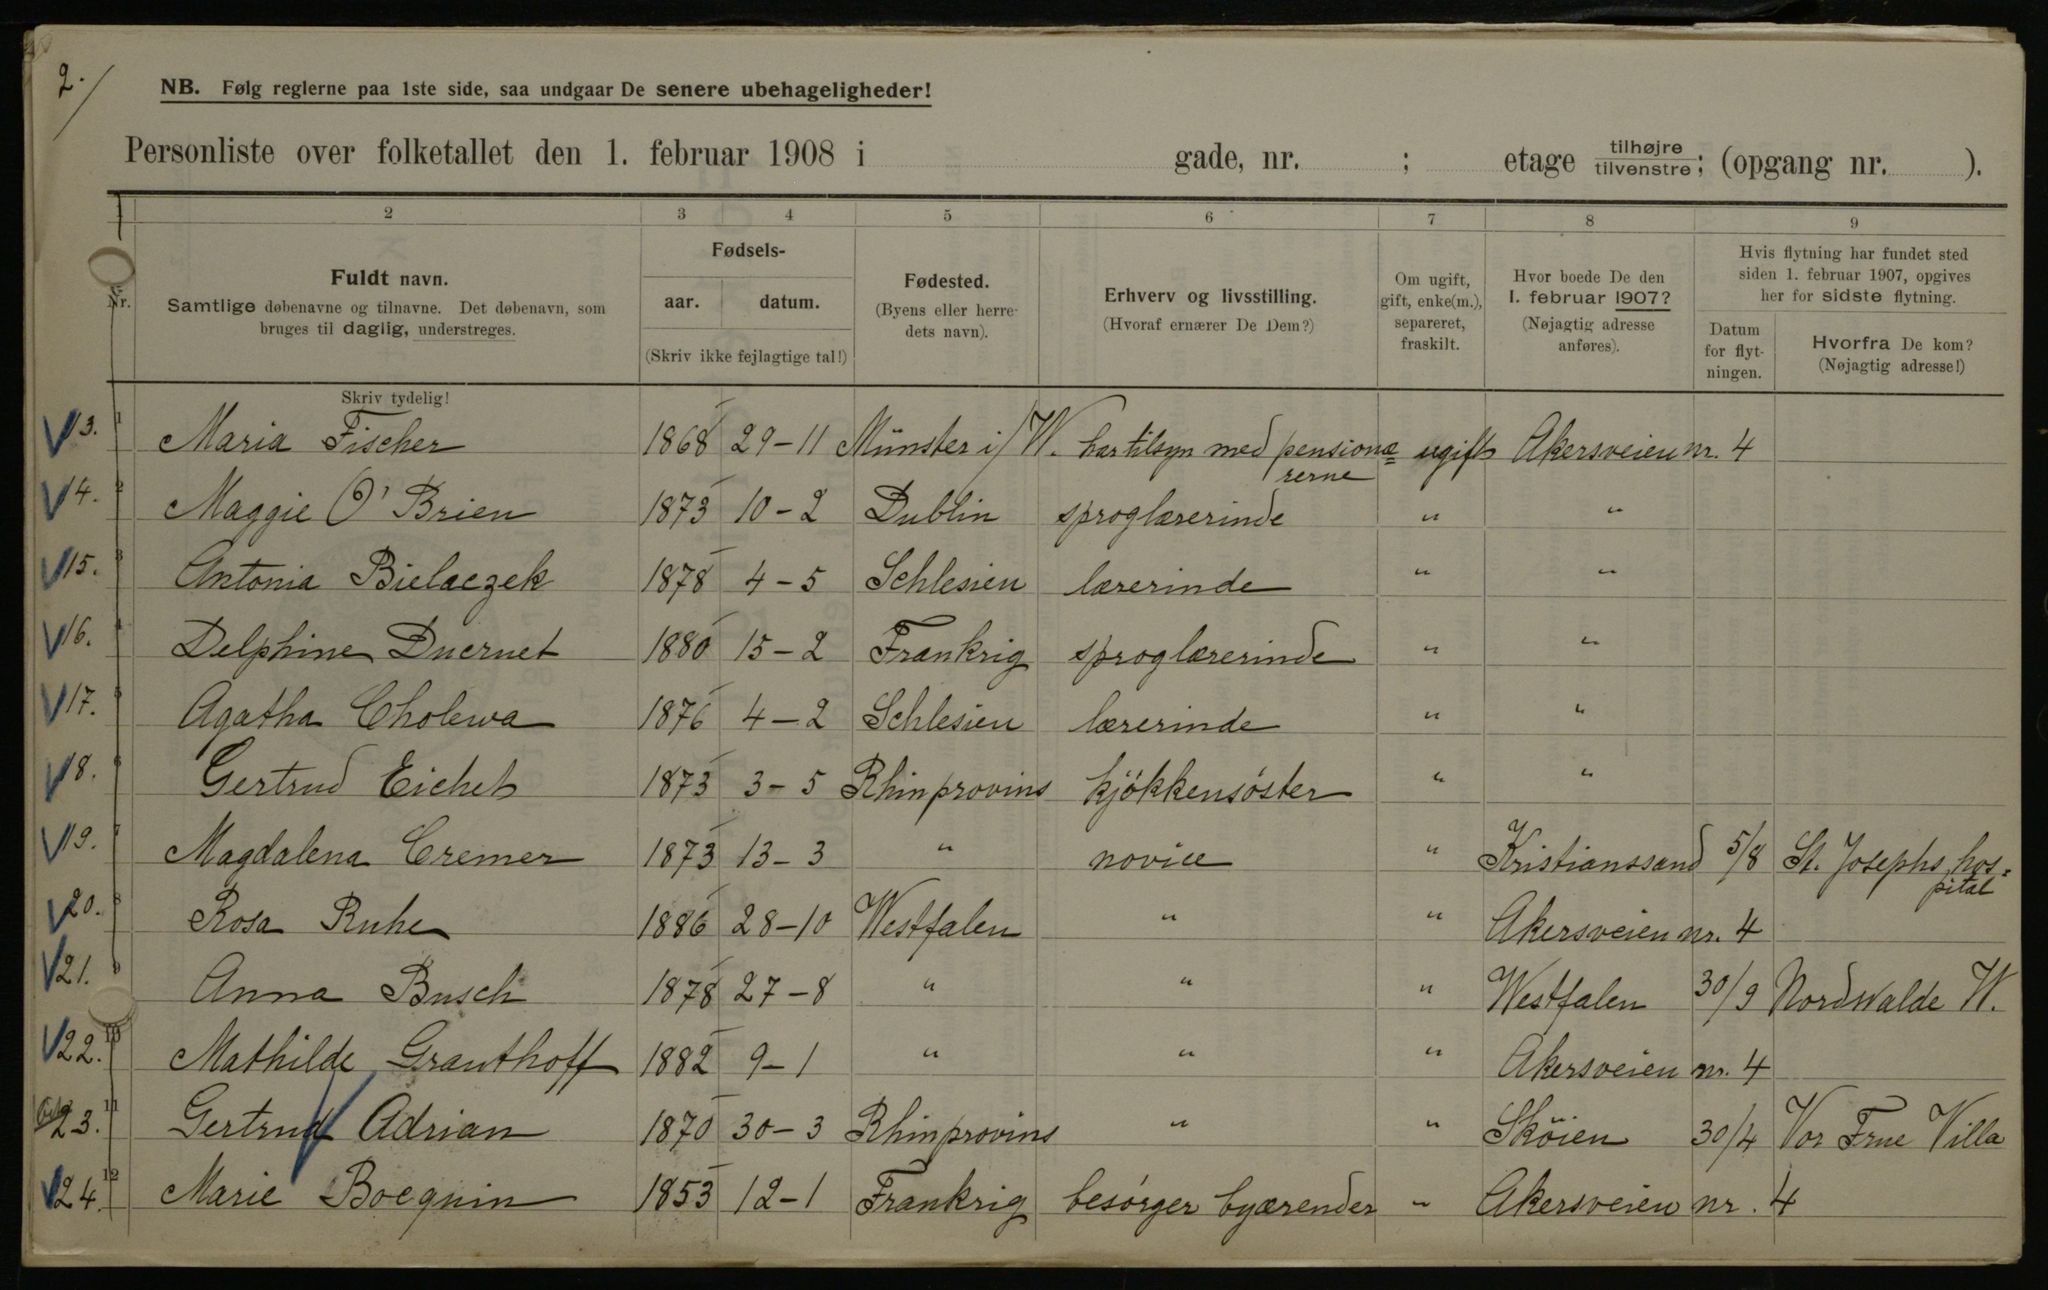 2.
NB. Følg reglerne paa 1ste side, saa undgaar De senere ubehageligheder!
Personliste over folketallet den 1. februar 1908 i gade, nr. ; etage tilhøjre tilvenstre; (opgang nr. ).
1 2 3 4 5 6 7 8 9
Nr.
Fuldt navn.
Samtlige døbenavne og tilnavne. Det døbenavn, som
bruges til daglig, understreges.
Fødsels-
aar. datum.
(Skriv ikke fejlagtige tal!)
Fødested.
(Byens eller herre-
dets navn).
Erhverv og livsstilling.
(Hvoraf ernærer De Dem?)
Om ugift,
gift, enke(m.),
separeret,
fraskilt.
Hvor boede De den
1. februar 1907?
(Nøjagtig adresse
anføres).
Hvis flytning har fundet sted
siden 1. februar 1907, opgives
her for sidste flytning.
Datum
for flyt-
ningen.
Hvorfra De kom?
(Nøjagtig adresse!)
Skriv tydelig!
13. 1 Maria Fischer 1868 29-11 Münster i/W. har tilsyn med pensionæ= ugift Akersveien nr. 4
rerne
14. 2 Maggie O'Brien 1873 10-2 Dublin sproglærerinde " "
15. 3 Antonia Bielaczek 1878 4-5 Schlesien lærerinde " "
16. 4 Delphine Ducruet 1880 15-2 Frankrig sproglærerinde " "
17. 5 Agatha Cholewa 1876 4-2 Schlesien lærerinde " "
18. 6 Gertrud Eichel 1873 3-5 Rhinprovins kjökkensöster " "
19. 7 Magdalena Cremer 1873 13-3 " novice " Kristianssand 5/8 St. Josephs hos=
pital
20. 8 Rosa Ruhe 1886 28-10 Westfalen " " Akersveien nr. 4
21. 9 Anna Busch 1878 27-8 " " " Westfalen 30/9 Nordwalde W.
22. 10 Mathilde Grauthoff 1882 9-1 " " " Akersveien nr. 4
23. 11 Gertrud Adrian 1870 30-3 Rhinprovins " " Sköien 30/4 Vor Frue Villa
24. 12 Marie Bocquin 1853 12-1 Frankrig besörger byærender " Akersveien nr. 4